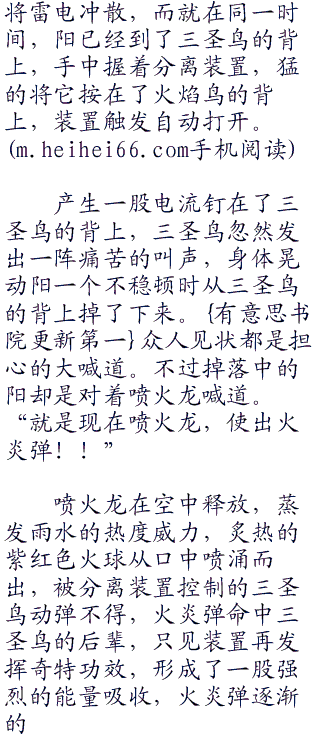 将雷电冲散，而就在同一时
间，阳已经到了三圣鸟的背
上，手中握着分离装置，猛
的将它按在了火焰鸟的背
上，装置触发自动打开。
(m.heihei66.com手机阅读)
产生一股电流钉在了三
圣鸟的背上，三圣鸟忽然发
出一阵痛苦的叫声，身体晃
动阳一个不稳顿时从三圣鸟
的背上掉了下来。{有意思书
院更新第一}众人见状都是担
心的大喊道。不过掉落中的
阳却是对着喷火龙喊道。
“就是现在喷火龙，使出火
炎弹！！”
喷火龙在空中释放，蒸
发雨水的热度威力，炙热的
紫红色火球从口中喷涌而
出，被分离装置控制的三圣
鸟动弹不得，火炎弹命中三
圣鸟的后辈，只见装置再发
挥奇特功效，形成了一股强
烈的能量吸收，火炎弹逐渐
的